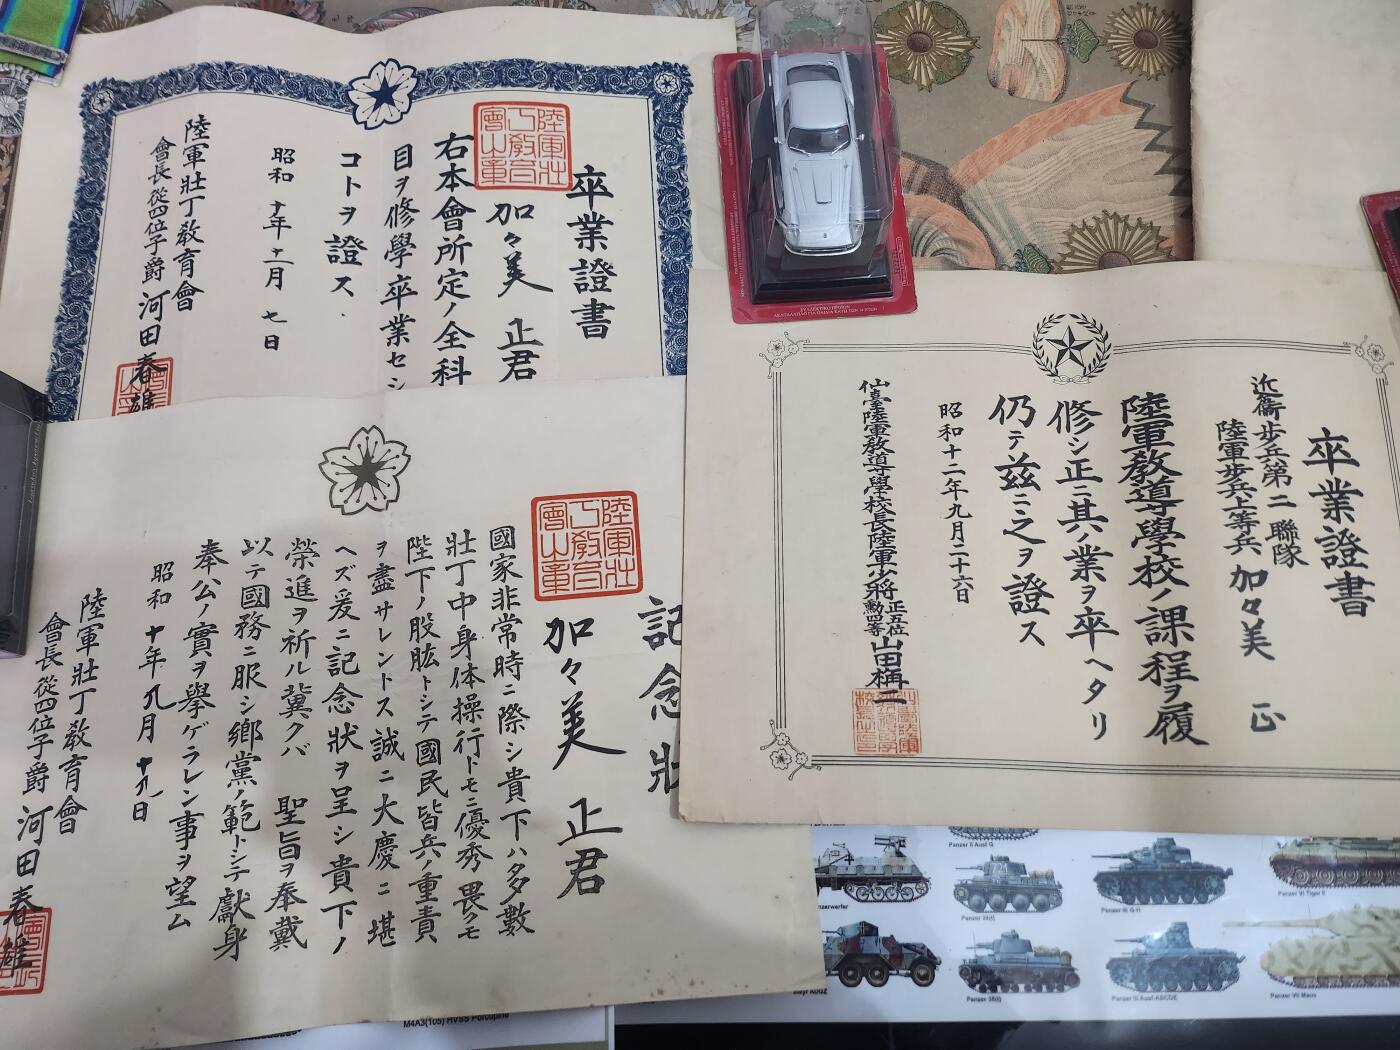 卒業證書
加々美 正君
右本會所定ノ全科
目ヲ修學卒業セシ
コトヲ證ス
昭和十年十一月七日
陸軍壯丁教育會
會長從四位子爵 河田春雄
記念狀
加々美 正君
國家非常時ニ際シ貴下ハ多數
壯丁中身体操行トモニ優秀畏クモ
陛下ノ股肱トシテ國民皆兵ノ重責
ヲ盡サレントス誠ニ大慶ニ堪
ヘズ爰ニ記念狀ヲ呈シ貴下ノ
榮進ヲ祈ル冀クバ 聖旨ヲ奉戴
以テ國務ニ服シ鄉黨ノ範トシテ獻身
奉公ノ實ヲ擧ゲラレン事ヲ望ム
昭和十年九月十九日
陸軍壯丁教育會
會長從四位子爵 河田春雄
卒業證書
近衞步兵第二聯隊
陸軍步兵上等兵 加々美 正
陸軍敎導學校ノ課程ヲ履
修シ正ニ其ノ業ヲ卒ヘタリ
仍テ茲ニ之ヲ證ス
昭和十二年九月二十六日
仙臺陸軍敎導學校長陸軍少將正五位勳四等山田梅二
Panzer II Ausf G
Panzer III G-H
Panzer VI Tiger II
Panzer III Ausf-A/B/C/D/E
Panzer VII Maus
M4A3(105) HVSS Porcupine